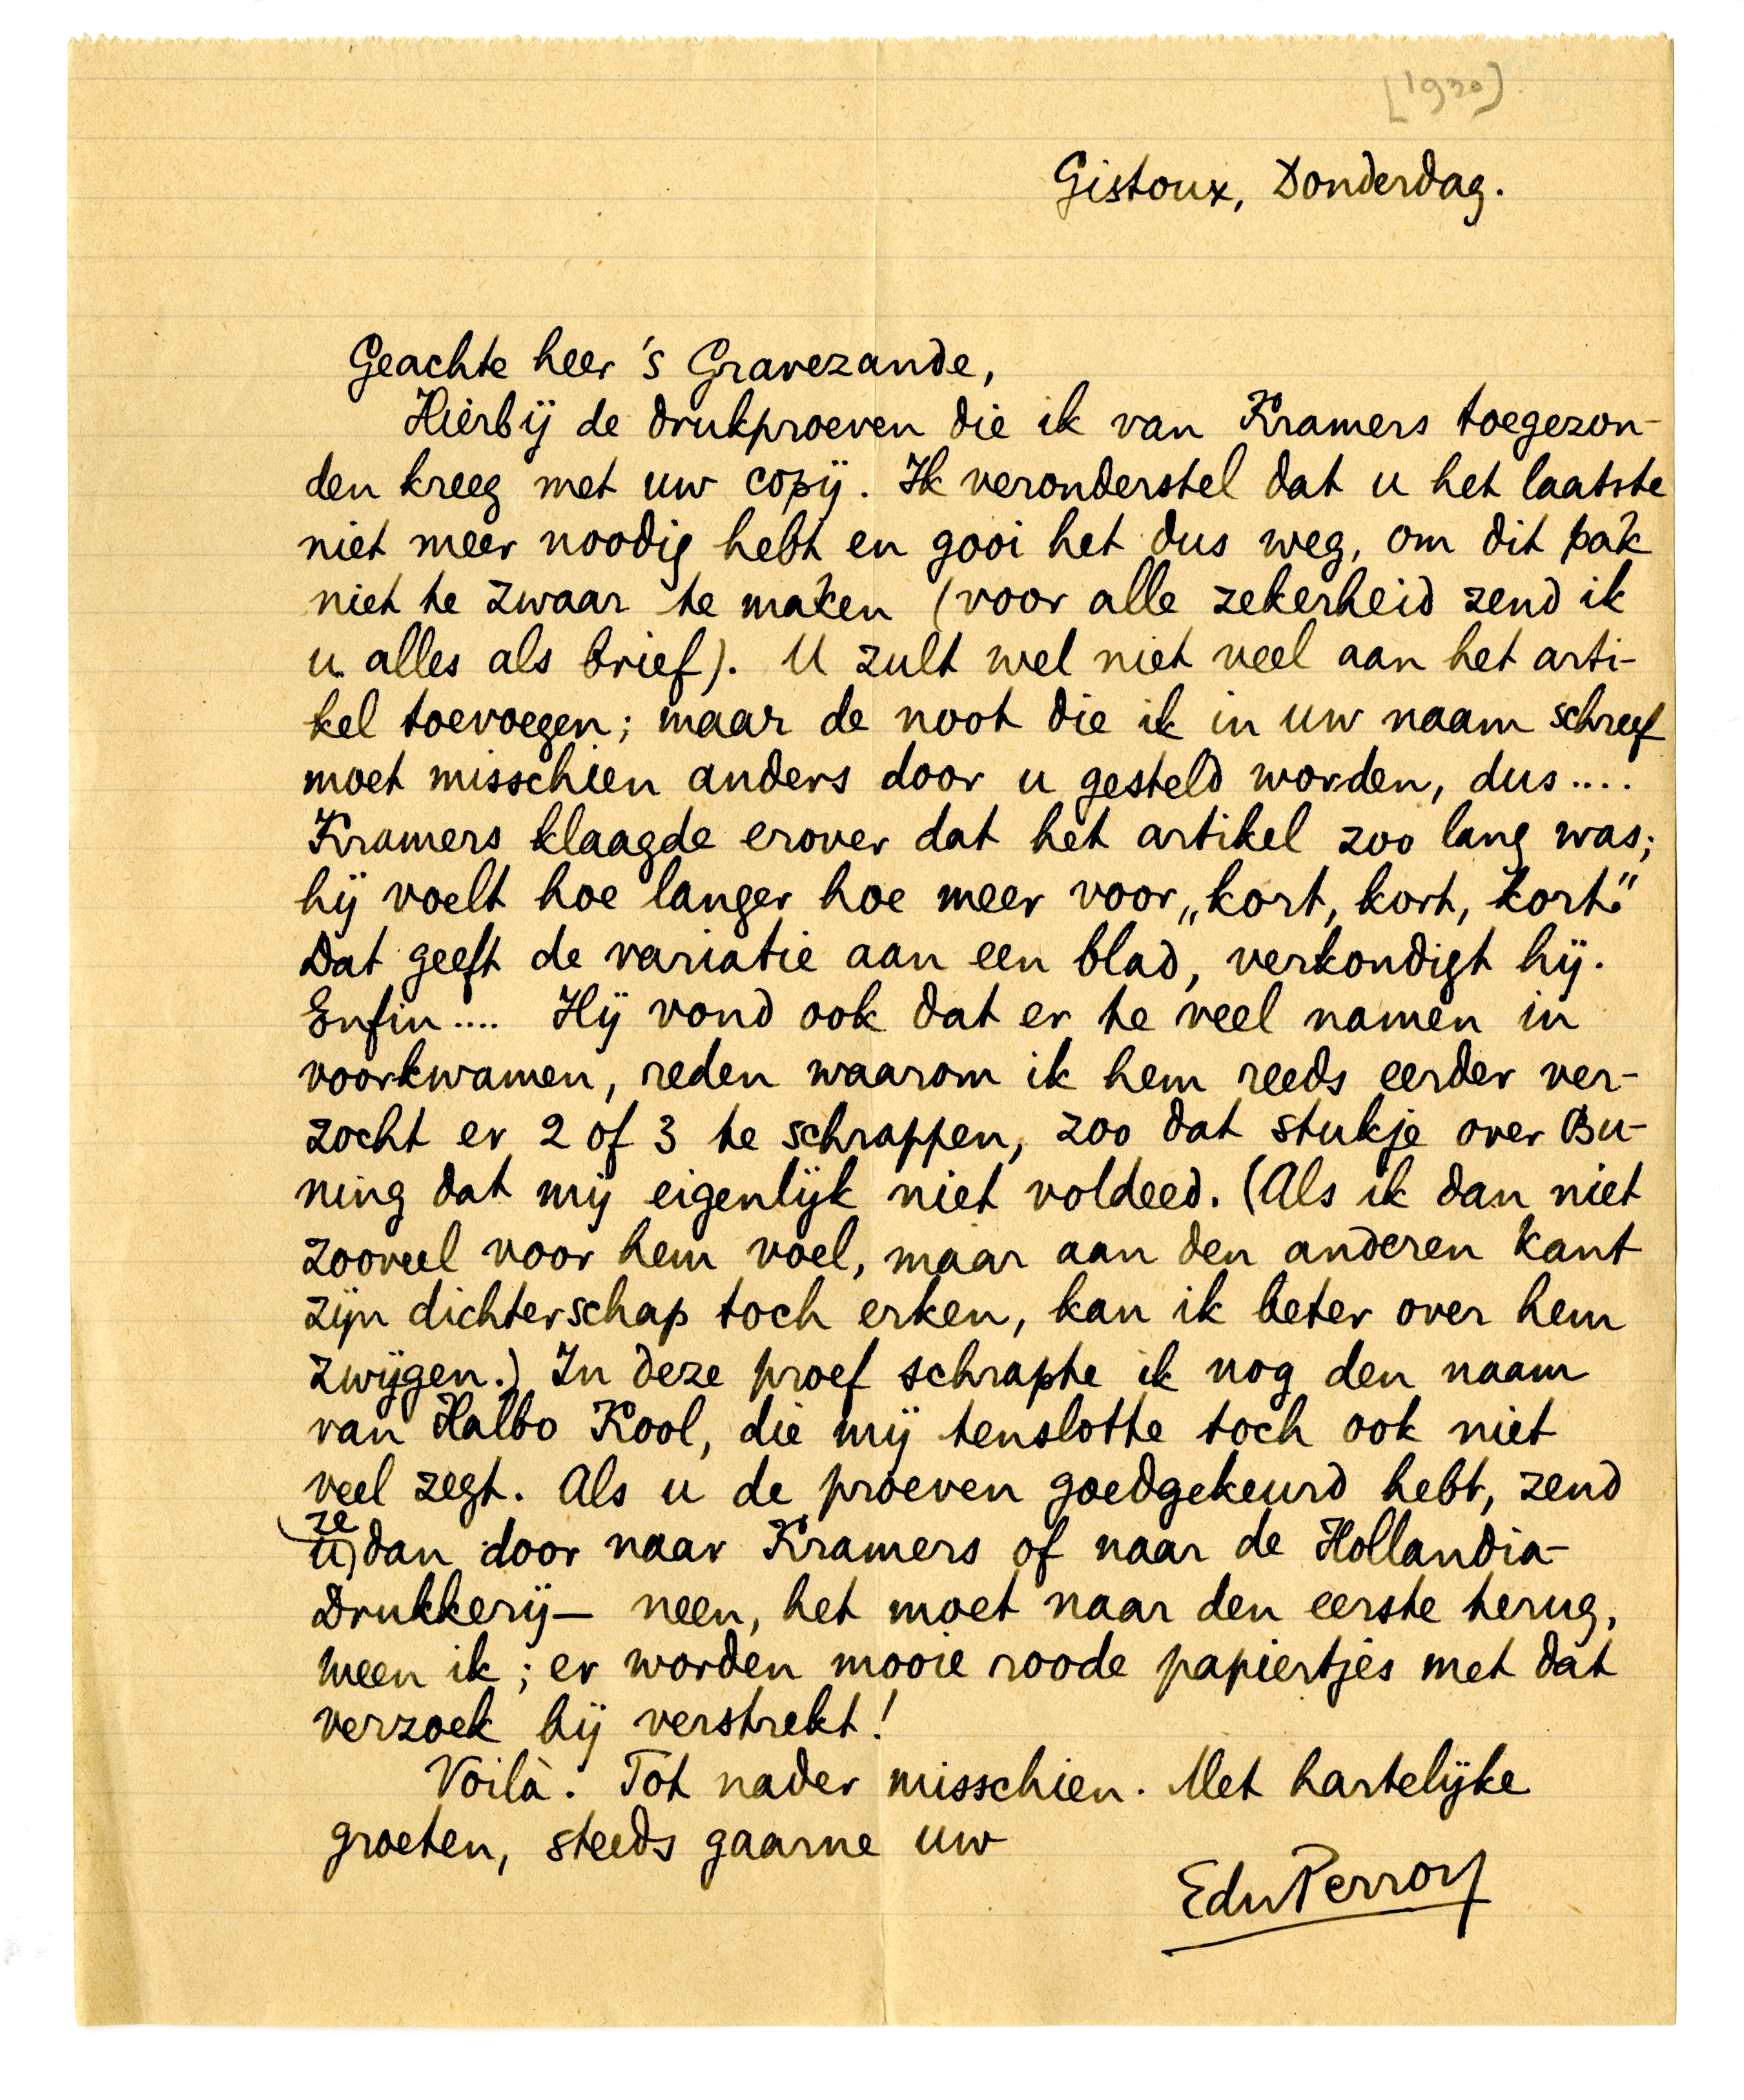 [1930]
Gistoux, Donderdag.
Geachte heer 's Gravezande,
Hierbij de drukproeven die ik van Kramers toegezon-
den kreeg met uw copij. Ik veronderstel dat u het laatste
niet meer noodig hebt en gooi het dus weg, om dit pak
niet te zwaar te maken (voor alle zekerheid zend ik
u alles als brief). U zult wel niet veel aan het arti-
kel toevoegen; maar de noot die ik in uw naam schreef
moet misschien anders door u gesteld worden, dus....
Kramers klaagde erover dat het artikel zoo lang was;
hij voelt hoe langer hoe meer voor „kort, kort, kort."
Dat geeft de variatie aan een blad, verkondigt hij.
Enfin.... Hij vond ook dat er te veel namen in
voorkwamen, reden waarom ik hem reeds eerder ver-
zocht er 2 of 3 te schrappen, zoo dat stukje over Bu-
ning dat mij eigenlijk niet voldeed. (Als ik dan niet
zooveel voor hem voel, maar aan den anderen kant
zijn dichterschap toch erken, kan ik beter over hem
zwijgen.) In deze proef schrapte ik nog den naam
van Halbo Kool, die mij tenslotte toch ook niet
veel zegt. Als u de proeven goedgekeurd hebt, zend
ze
u dan door naar Kramers of naar de Hollandia-
Drukkerij — neen, het moet naar den eerste terug,
meen ik; er worden mooie roode papiertjes met dat
verzoek bij verstrekt!
Voilà. Tot nader misschien. Met hartelijke
groeten, steeds gaarne uw
EduPerron